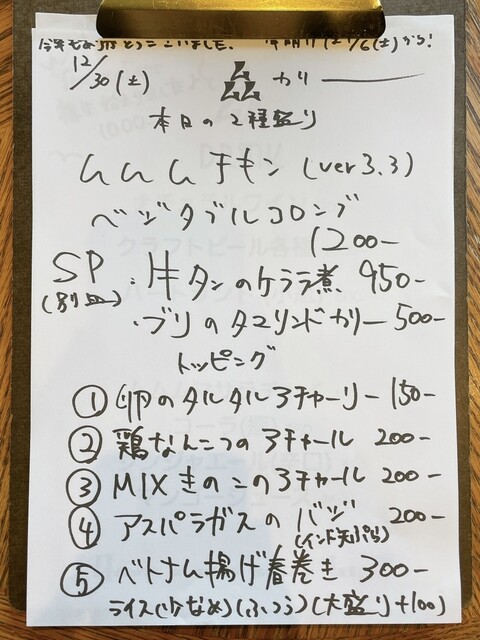 今年もありがとうございました。 年明け 1/6(土)から!
12/30(土)
ムムム カリー
本日の2種盛り
ムムムチキン (ver3.3)
ベジタブルコロンブ
1200-
SP (別皿)
・牛タンのケララ煮 950-
・ブリのタマリンドカリー 500-
トッピング
① 卵のタルタルアチャーリー 150-
② 鶏なんこつのアチャール 200-
③ MIXきのこのアチャール 200-
④ アスパラガスのバジ 200-
(インド天ぷら)
⑤ ベトナム揚げ春巻き 300-
ライス(少なめ)(ふつう)(大盛り+100)